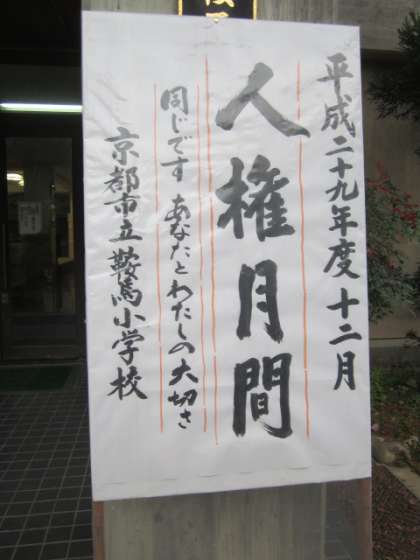 平成二十九年度 十二月
人権月間
同じです あなたとわたしの大切さ
京都市立鞍馬小学校